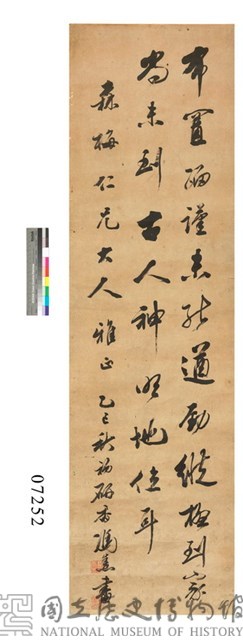 布置綿謹未能遒勁縱極到家
尚未到古人神明地位耳
森梅仁兄大人 雅正 乙巳秋 書
07252
國立歷史博物館
NATIONAL MUSEUM OF HISTORY